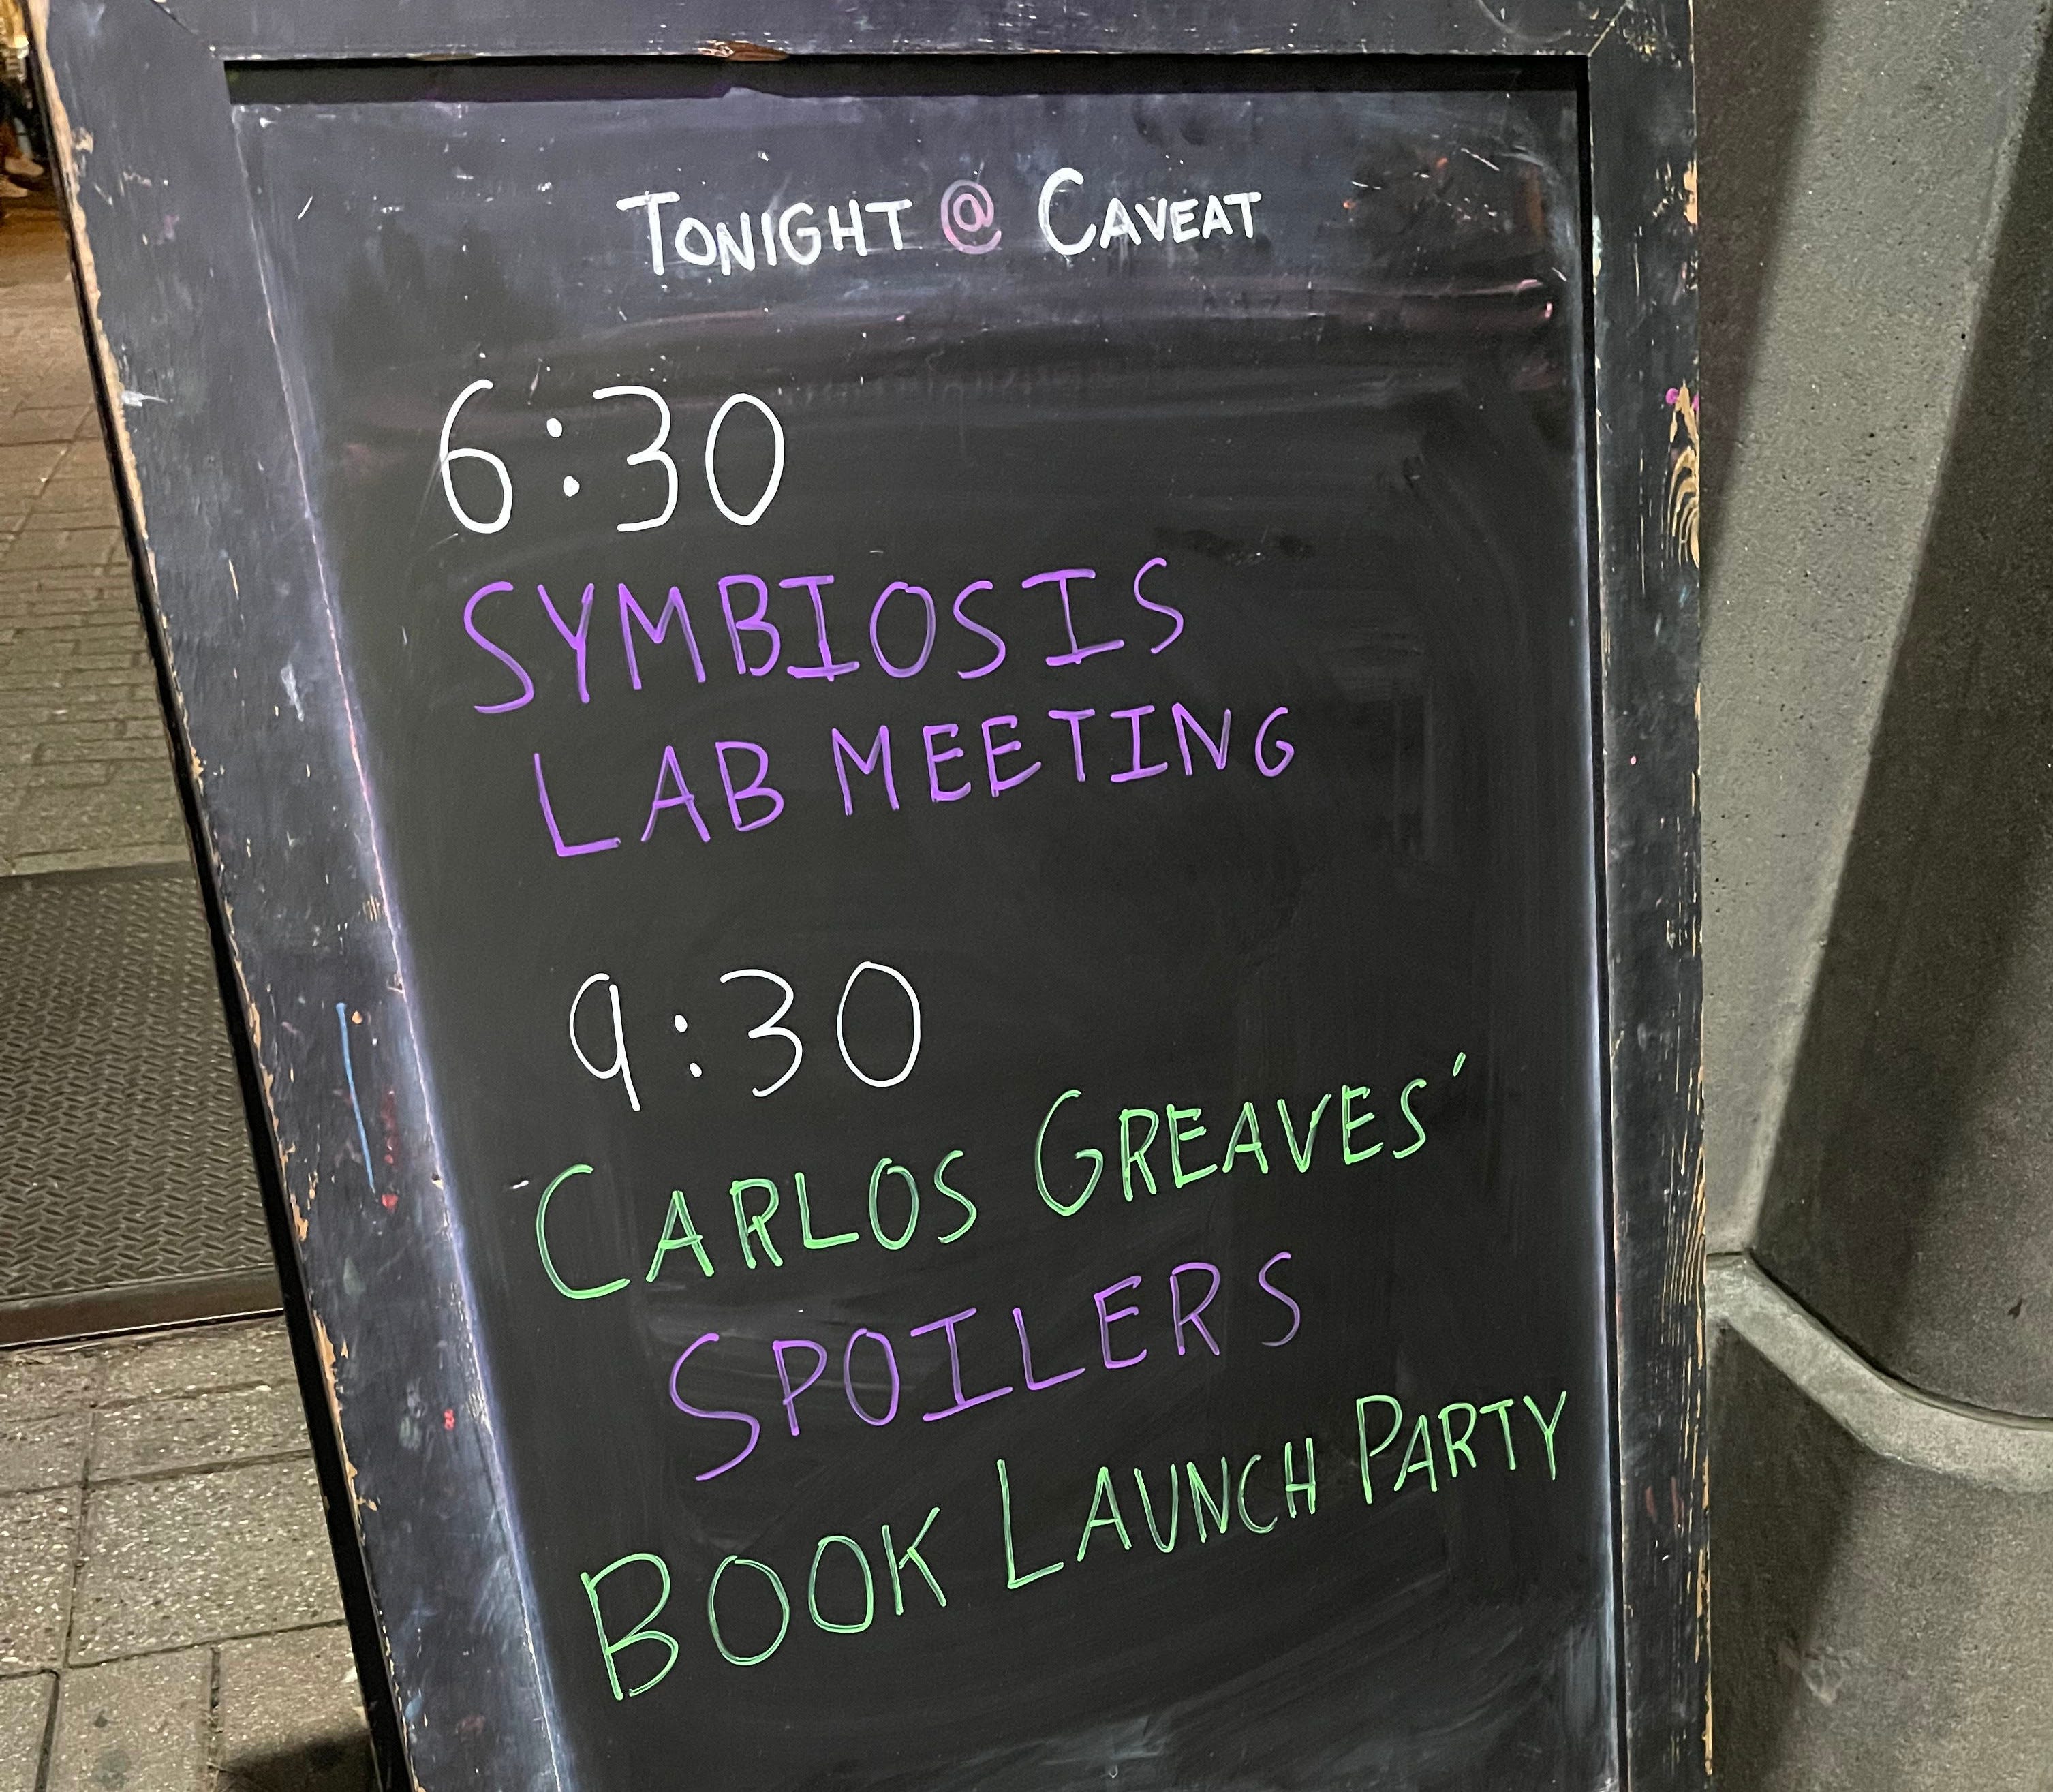 TONIGHT @ CAVEAT
6:30
SYMBIOSIS
LAB MEETING
9:30
CARLOS GREAVES'
SPOILERS
BOOK LAUNCH PARTY